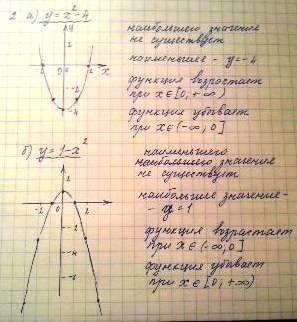 2 а) y = x² - 4
наибольшего значение
не существует
наименьшее - y = -4
функция возрастает
при x ∈ [0, +∞)
функция убывает
при x ∈ (-∞; 0]
y
x
-2
0
2
-4
б) y = 1 - x²
наименьшего
наибольшего значения
не существует
наибольшее значение -
- y = 1
функция возрастает
при x ∈ (-∞; 0]
функция убывает
при x ∈ [0; +∞)
-2
0
2